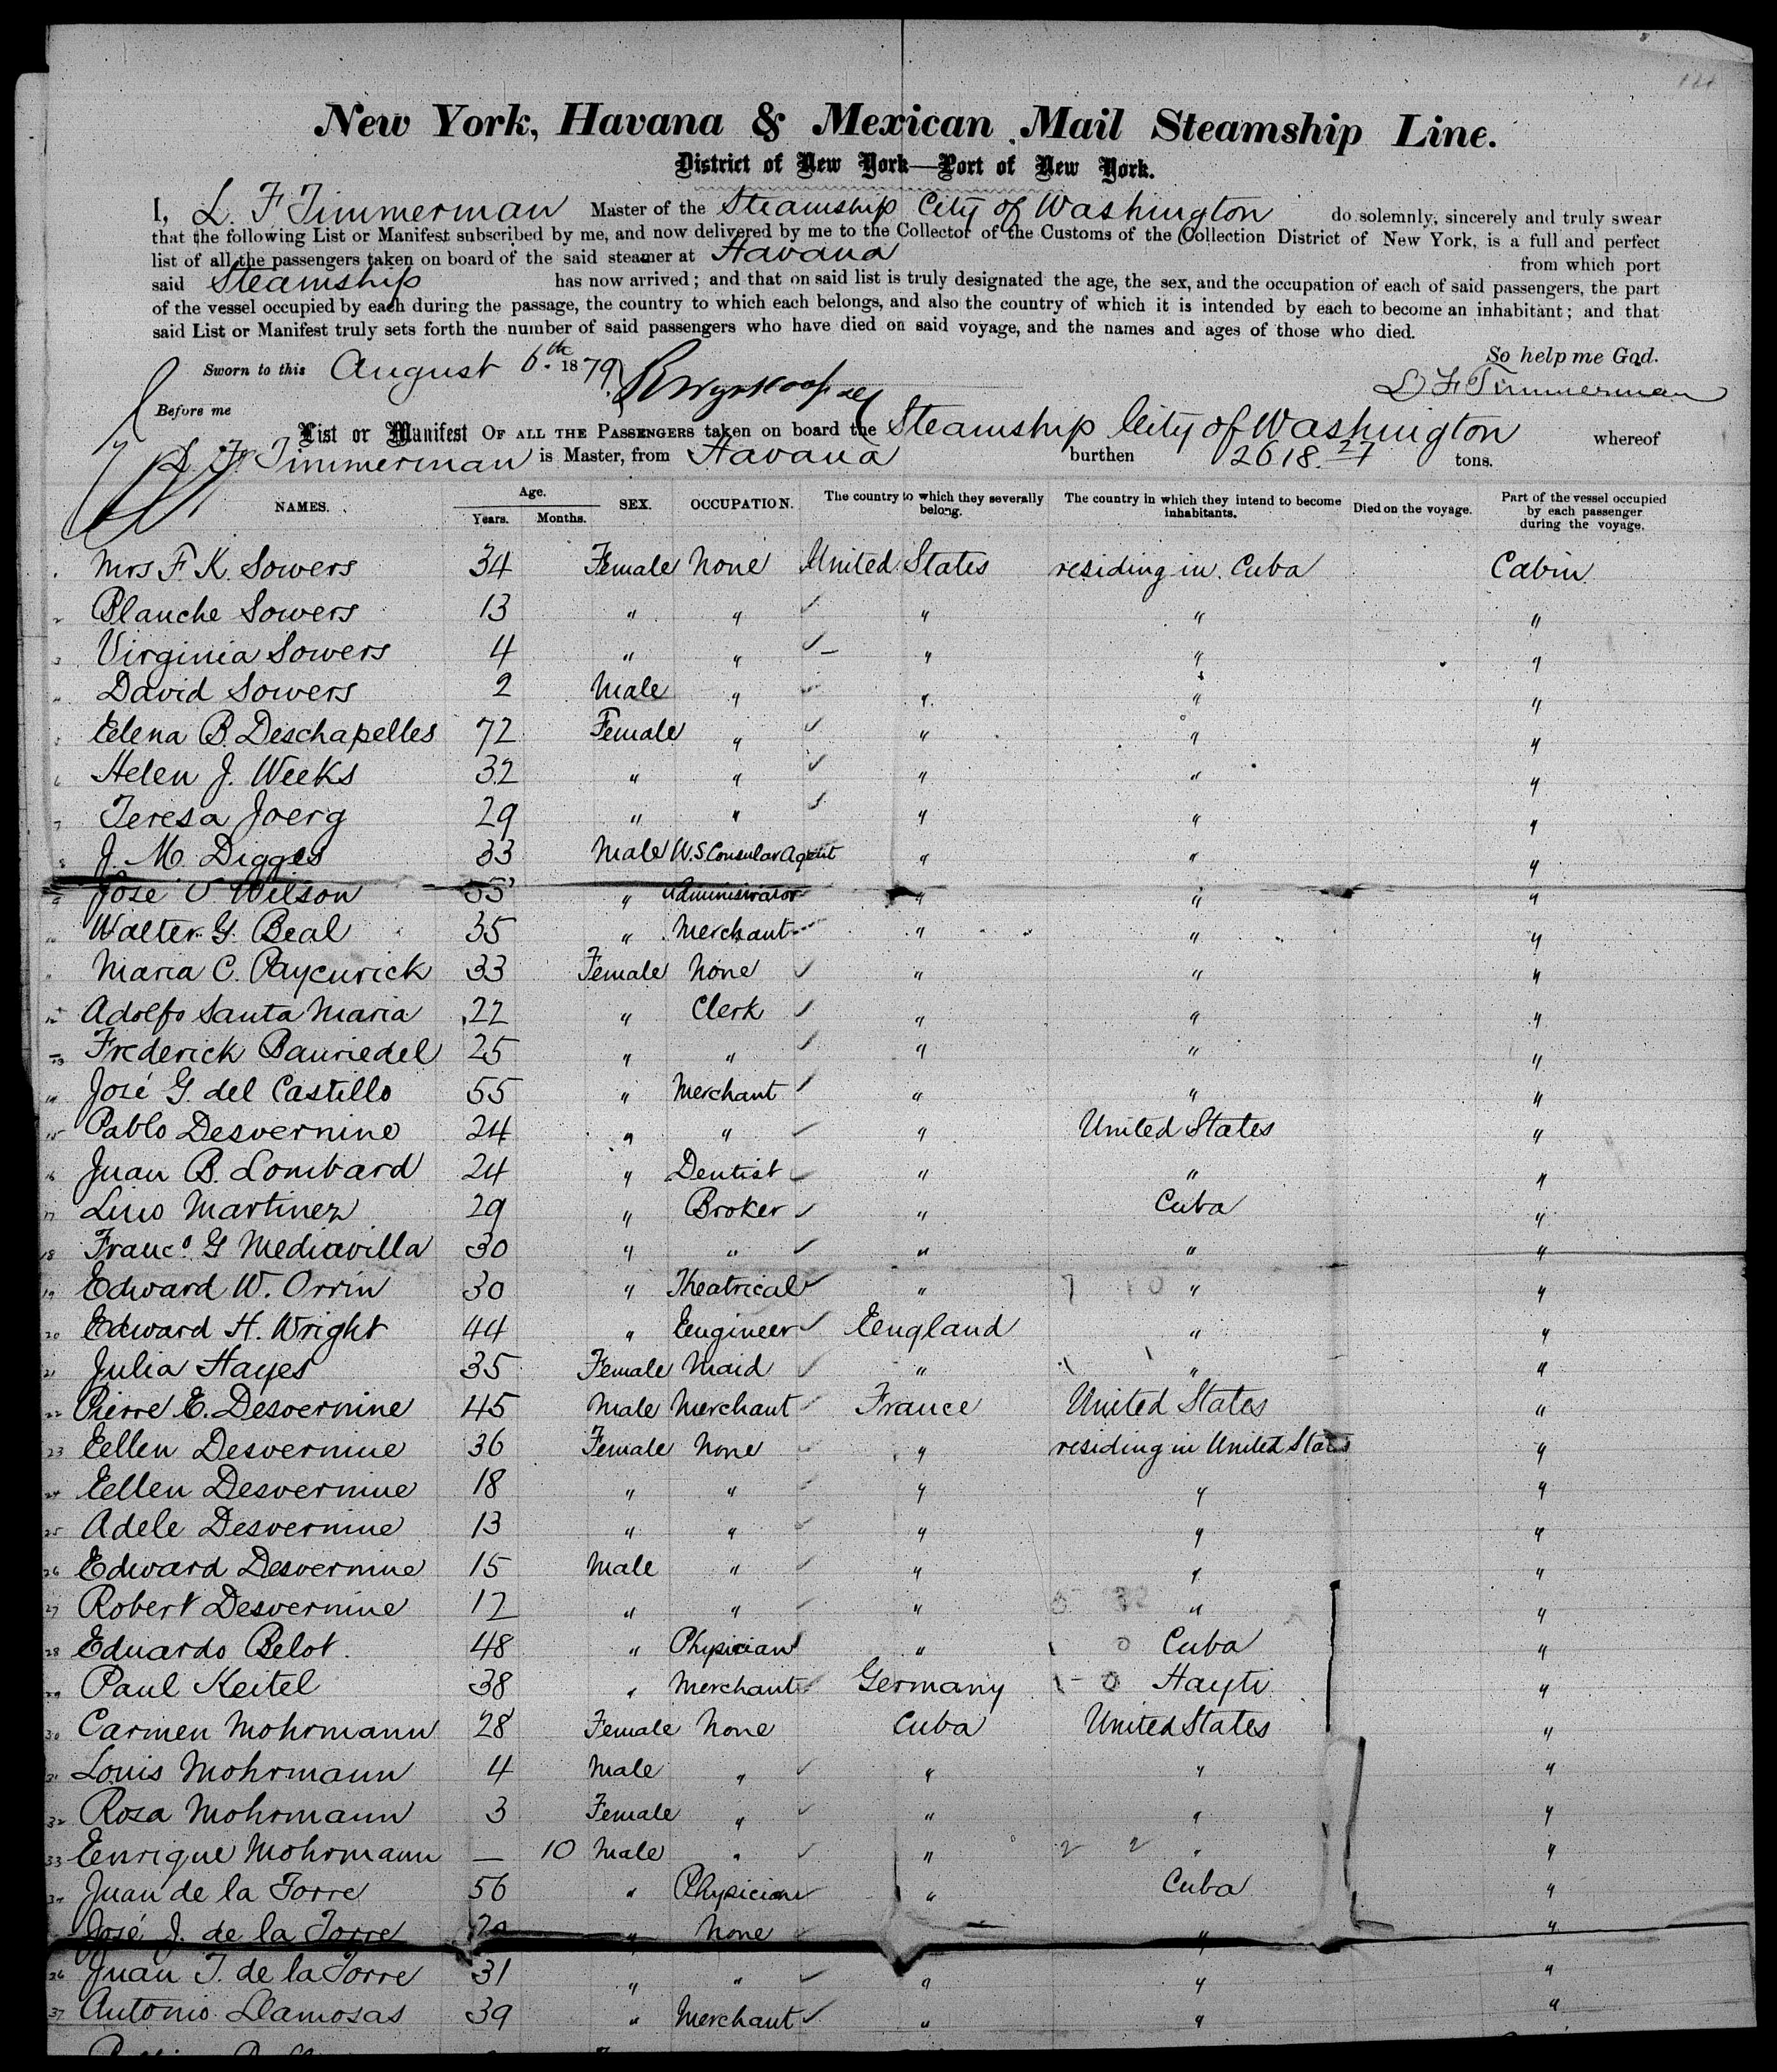 New York, Havana & Mexican Mail Steamship Line.
District of New York—Port of New York.
I, L. F Timmerman Master of the Steamship City of Washington do solemnly, sincerely and truly swear
that the following List or Manifest subscribed by me, and now delivered by me to the Collector of the Customs of the Collection District of New York, is a full and perfect
list of all the passengers taken on board of the said steamer at Havana from which port
said Steamship has now arrived; and that on said list is truly designated the age, the sex, and the occupation of each of said passengers, the part
of the vessel occupied by each during the passage, the country to which each belongs, and also the country of which it is intended by each to become an inhabitant; and that
said List or Manifest truly sets forth the number of said passengers who have died on said voyage, and the names and ages of those who died.
So help me God.
Sworn to this August 6th 1879
L F Timmerman
Before me
List or Manifest OF ALL THE PASSENGERS taken on board the Steamship City of Washington whereof
L. F. Timmerman is Master, from Havana burthen 2618.27 tons.
NAMES. Age. Years. Months. SEX. OCCUPATION. The country to which they severally belong. The country in which they intend to become inhabitants. Died on the voyage. Part of the vessel occupied by each passenger during the voyage.
Mrs F. K. Sowers 34 Female None United States residing in Cuba Cabin
2 Blanche Sowers 13 " " " " "
3 Virginia Sowers 4 " " " " "
David Sowers 2 Male " " " "
Elena B. Deschapelles 72 Female " " " "
6 Helen J. Weeks 32 " " " " "
7 Teresa Joerg 29 " " " " "
8 J. M. Digges 33 Male U.S. Consular Agent " " "
9 José Wilson " Administrator " " "
10 Walter G. Beal 35 " Merchant " " "
11 Maria C. Paycurick 33 Female None " " "
12 Adolfo Santa Maria 22 " Clerk " " "
13 Frederick Bauriedel 25 " " " " "
14 José G. del Castillo 55 " Merchant " " "
15 Pablo Desvernine 24 " " " United States "
16 Juan B. Lombard 24 " Dentist " " "
17 Lino Martinez 29 " Broker " Cuba "
18 Franco. G Mediavilla 30 " " " " "
19 Edward W. Orrin 30 " Theatrical " " "
20 Edward H. Wright 44 " Engineer England " "
21 Julia Hayes 35 Female Maid " " "
22 Pierre E. Desvernine 45 Male Merchant France United States "
23 Ellen Desvernine 36 Female None " residing in United States "
24 Ellen Desvernine 18 " " " " "
25 Adele Desvernine 13 " " " " "
26 Edward Desvernine 15 Male " " " "
27 Robert Desvernine 12 " " " " "
28 Eduardo Belot. 48 " Physician " Cuba "
29 Paul Keitel 38 " Merchant Germany Hayti "
30 Carmen Mohrmann 28 Female None Cuba United States "
31 Louis Mohrmann 4 Male " " " "
32 Rosa Mohrmann 3 Female " " " "
33 Enrique Mohrmann — 10 Male " " " "
34 Juan de la Torre 56 " Physician " Cuba "
José J. de la Torre " None " "
36 Juan T. de la Torre 31 " " " " "
37 Antonio Llamosas 39 " Merchant " " "